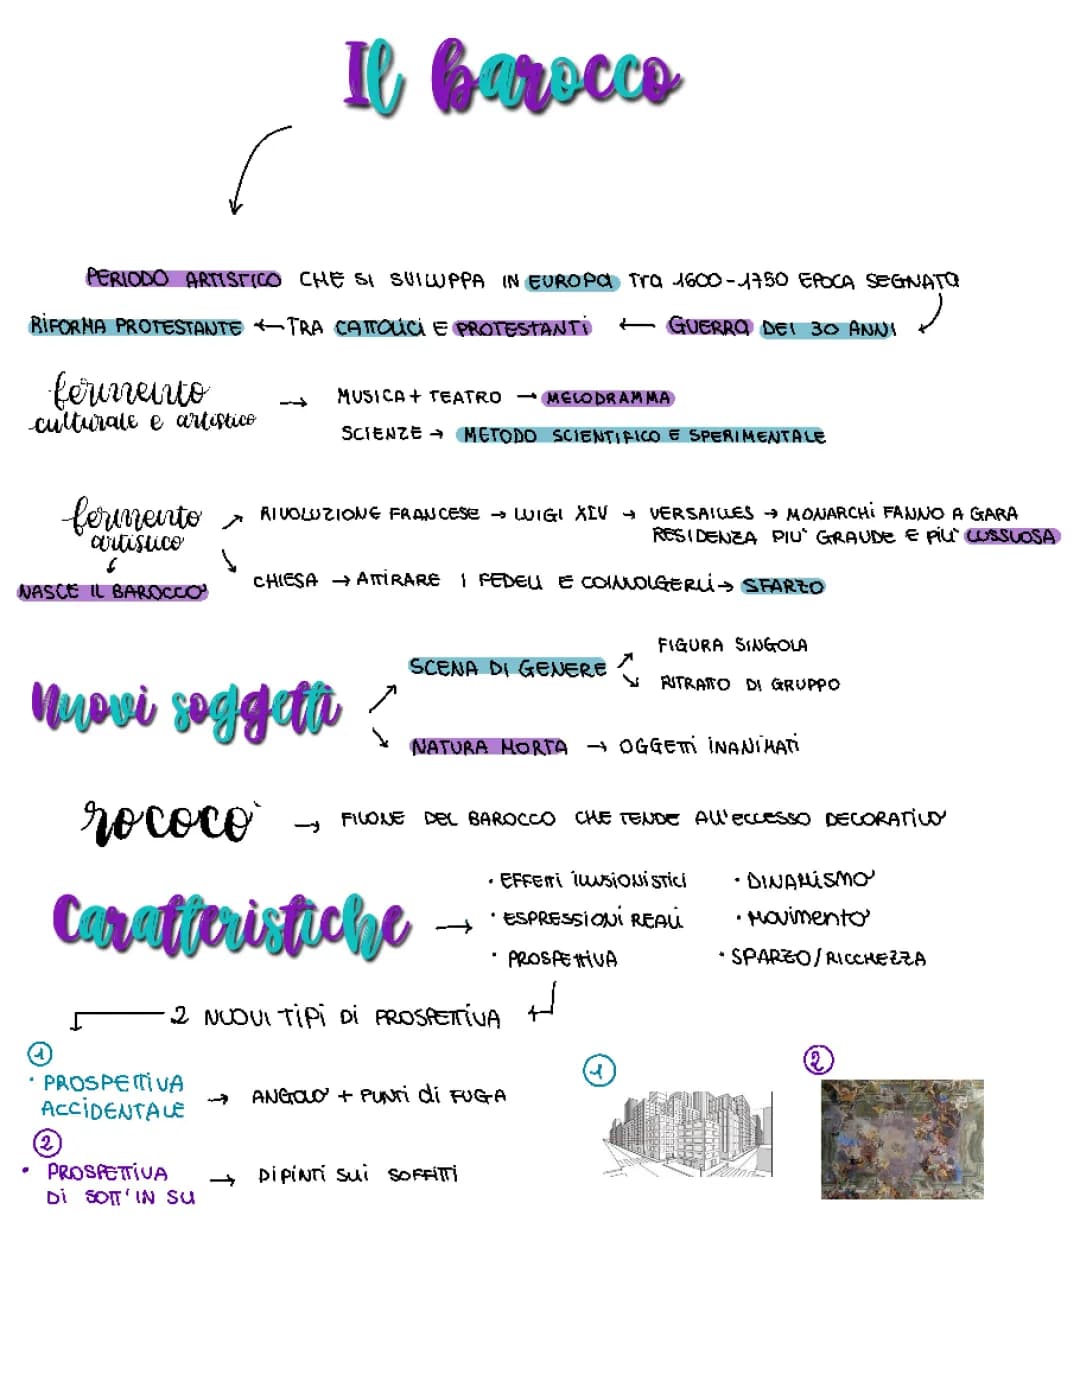 Il barocco
PERIODO ARTISTICO CHE SI SVILUPPA IN EUROPA TRA 1600-1750 EPOCA SEGNATA
RIFORMA PROTESTANTE ← TRA CATTOLICI E PROTESTANTI ← GUERRA DEI 30 ANNI
fermento
culturale e artistico
→ MUSICA + TEATRO → MELODRAMMA
SCIENZE → METODO SCIENTIFICO E SPERIMENTALE
fermento
artistico
NASCE IL BAROCCO
RIVOLUZIONE FRANCESE → LUIGI XIV → VERSAILLES → MONARCHI FANNO A GARA
RESIDENZA PIU' GRANDE E PIU' LUSSUOSA
CHIESA → ATTIRARE I FEDELI E COINVOLGERLI → SFARZO
Nuovi soggetti
SCENA DI GENERE
FIGURA SINGOLA
RITRATTO DI GRUPPO
NATURA MORTA → OGGETTI INANIMATI
rococò → FILONE DEL BAROCCO CHE TENDE ALL'ECCESSO DECORATIVO
Caratteristiche →
• EFFETTI ILLUSIONISTICI
• ESPRESSIONI REALI
• PROSPETTIVA
• DINAMISMO
• MOVIMENTO
• SFARZO/RICCHEZZA
2 NUOVI TIPI DI PROSPETTIVA
1
• PROSPETTIVA
ACCIDENTALE
→ ANGOLO + PUNTI di FUGA
2
• PROSPETTIVA
DI SOTT'IN SU
→ DIPINTI SUI SOFFITTI
1
2